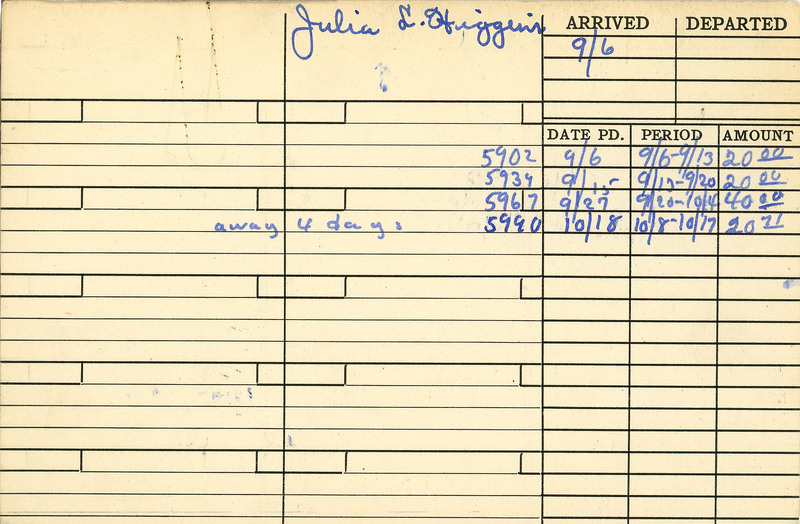 Julia L. Huggins
ARRIVED DEPARTED
9/6
DATE PD. PERIOD AMOUNT
5902 9/6 9/6-9/13 20 00
5934 9/15 9/13-9/20 20 00
5967 9/27 9/20-10/4 40 00
away 4 days 5990 10/18 10/8-10/17 20